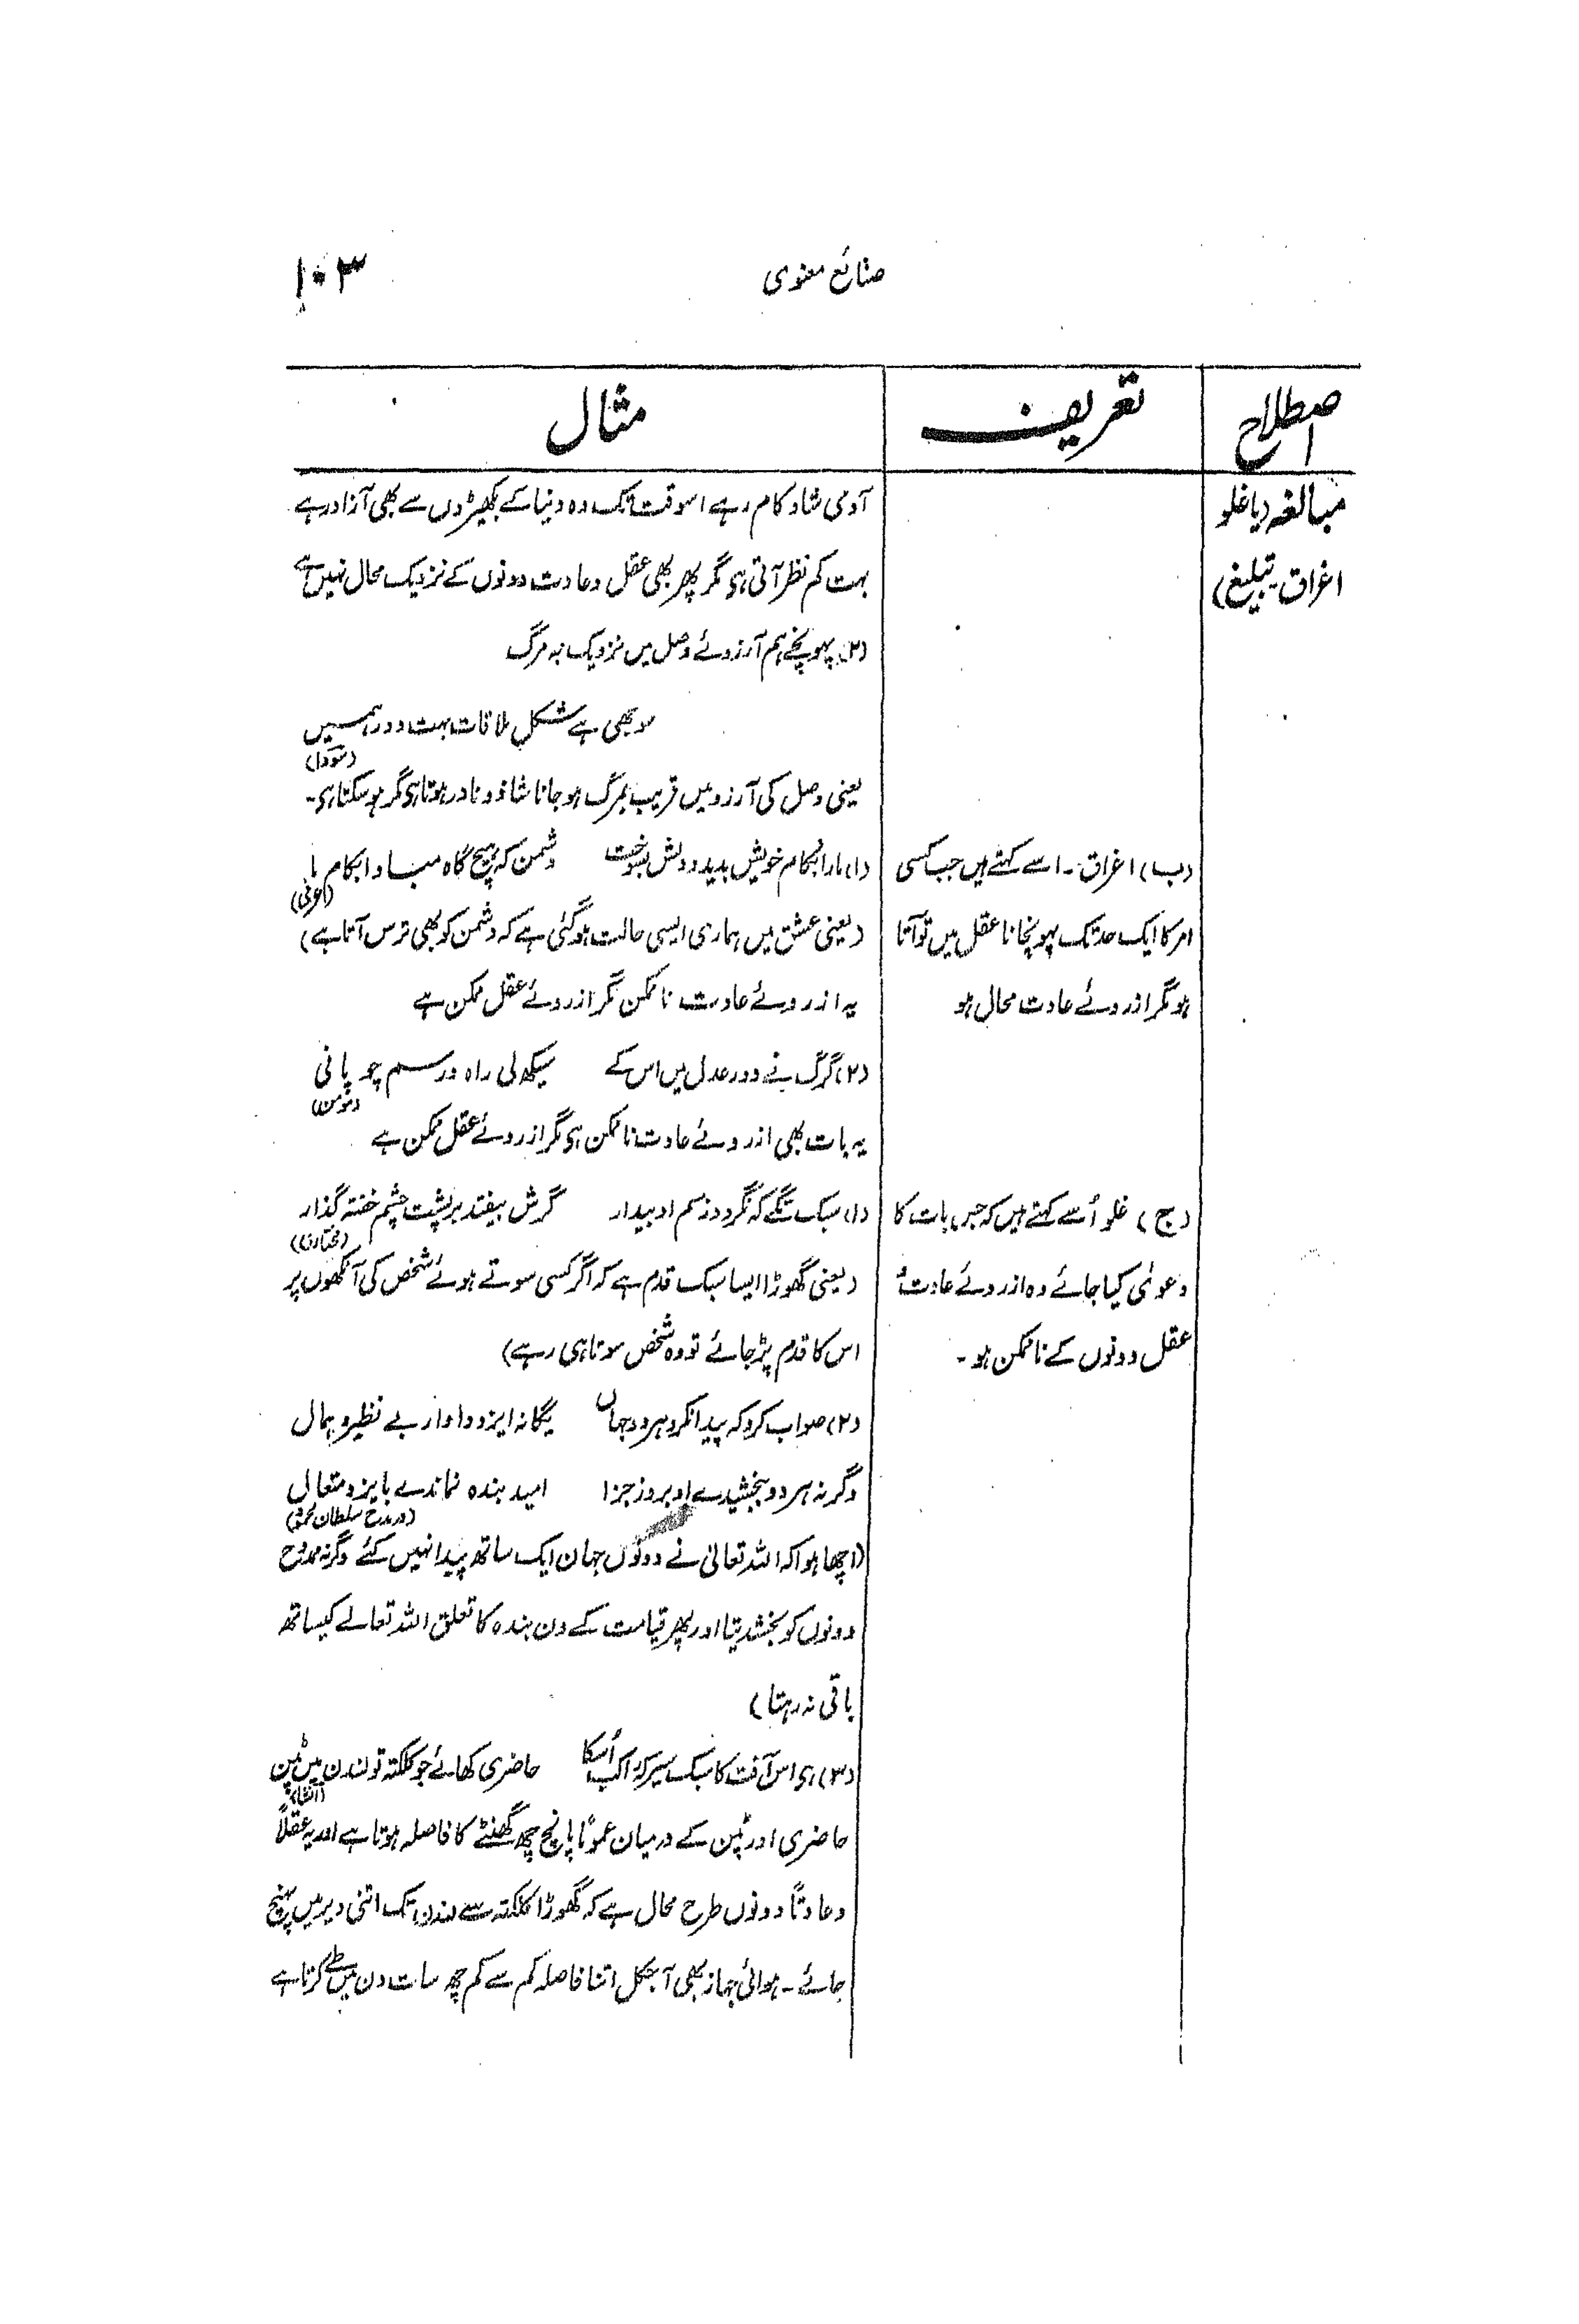 صنائع معنوی
۱۰۳
اصطلاح
تعریف
مثال
مبالغہ (یا غلو
اغراق۔ تبلیغ)
آدمی شاد کام رہے اسوقت تک وہ دنیا کے بکھیڑوں سے بھی آزاد رہے
بہت کم نظر آتی ہی مگر پھر بھی عقل و عادت دونوں کے نزدیک محال نہیں ہے
(۲) پہونچے ہم آرزوئے وصل میں نزدیک بہ مرگ
سوجھی ہے شکل ملاقات بہت دور ہمیں
(سودا)
یعنی وصل کی آرزو میں قریب بمرگ ہو جانا شاذ و نادر ہوتا ہی مگر ہو سکتا ہی۔
(ب) اغراق۔ اسے کہتے ہیں جب کسی
امر کا ایک حد تک پہونچانا عقل میں تو آتا
ہو مگر از روئے عادت محال ہو
(۱) مارا بکام خویش بدید و دلش بسوخت دشمن کہ ہیچ گاہ مبادا بکام ما
(عرفی)
(یعنی عشق میں ہماری ایسی حالت ہو گئی ہے کہ دشمن کو بھی ترس آتا ہے)
یہ از روئے عادت ناممکن مگر از روئے عقل ممکن ہے
(۲) گرگ نے دور عدل میں اس کے سیکھ لی راہ و رسم چوپانی
(مومن)
یہ بات بھی از روئے عادت ناممکن ہی مگر از روئے عقل ممکن ہے
(ج) غلو اُسے کہتے ہیں کہ جس بات کا
دعویٰ کیا جائے وہ از روئے عادت و
عقل دونوں کے ناممکن ہو۔
(۱) سبک تگے کہ نگردد ز سم او بیدار گرش بیفتد بر پشت چشم خفتہ گذار
(مختاری)
(یعنی گھوڑا ایسا سبک قدم ہے کہ اگر کسی سوتے ہوئے شخص کی آنکھوں پر
اس کا قدم پڑ جائے تو وہ شخص سوتا ہی رہے)
(۲) صواب کرد کہ پیدا نکرد ہر دو جہاں یگانہ ایزد دادار بے نظیر و ہمال
وگرنہ ہر دو بخشیدے او بروز جزا امید بندہ نماندے بایزد متعال
(در مدح سلطان محمود)
(اچھا ہوا کہ اللہ تعالیٰ نے دونوں جہان ایک ساتھ پیدا نہیں کئے وگرنہ ممدوح
دونوں کو بخشدیتا اور پھر قیامت کے دن بندہ کا تعلق اللہ تعالے کیساتھ
باقی نہ رہتا)
(۳) ہی اس آفت کا سبک سیر کہ راکب اُسکا حاضری کھائے جو کلکتہ تو لندن میں ٹپن
(انشا)
حاضری اور ٹپن کے درمیان عموماً پانچ چھ گھنٹے کا فاصلہ ہوتا ہے اور یہ عقلاً
و عادتاً دونوں طرح محال ہے کہ گھوڑا کلکتہ سے لندن تک اتنی دیر میں پہنچ
جائے۔ ہوائی جہاز بھی آجکل اتنا فاصلہ کم سے کم چھ سات دن میں طے کرتا ہے